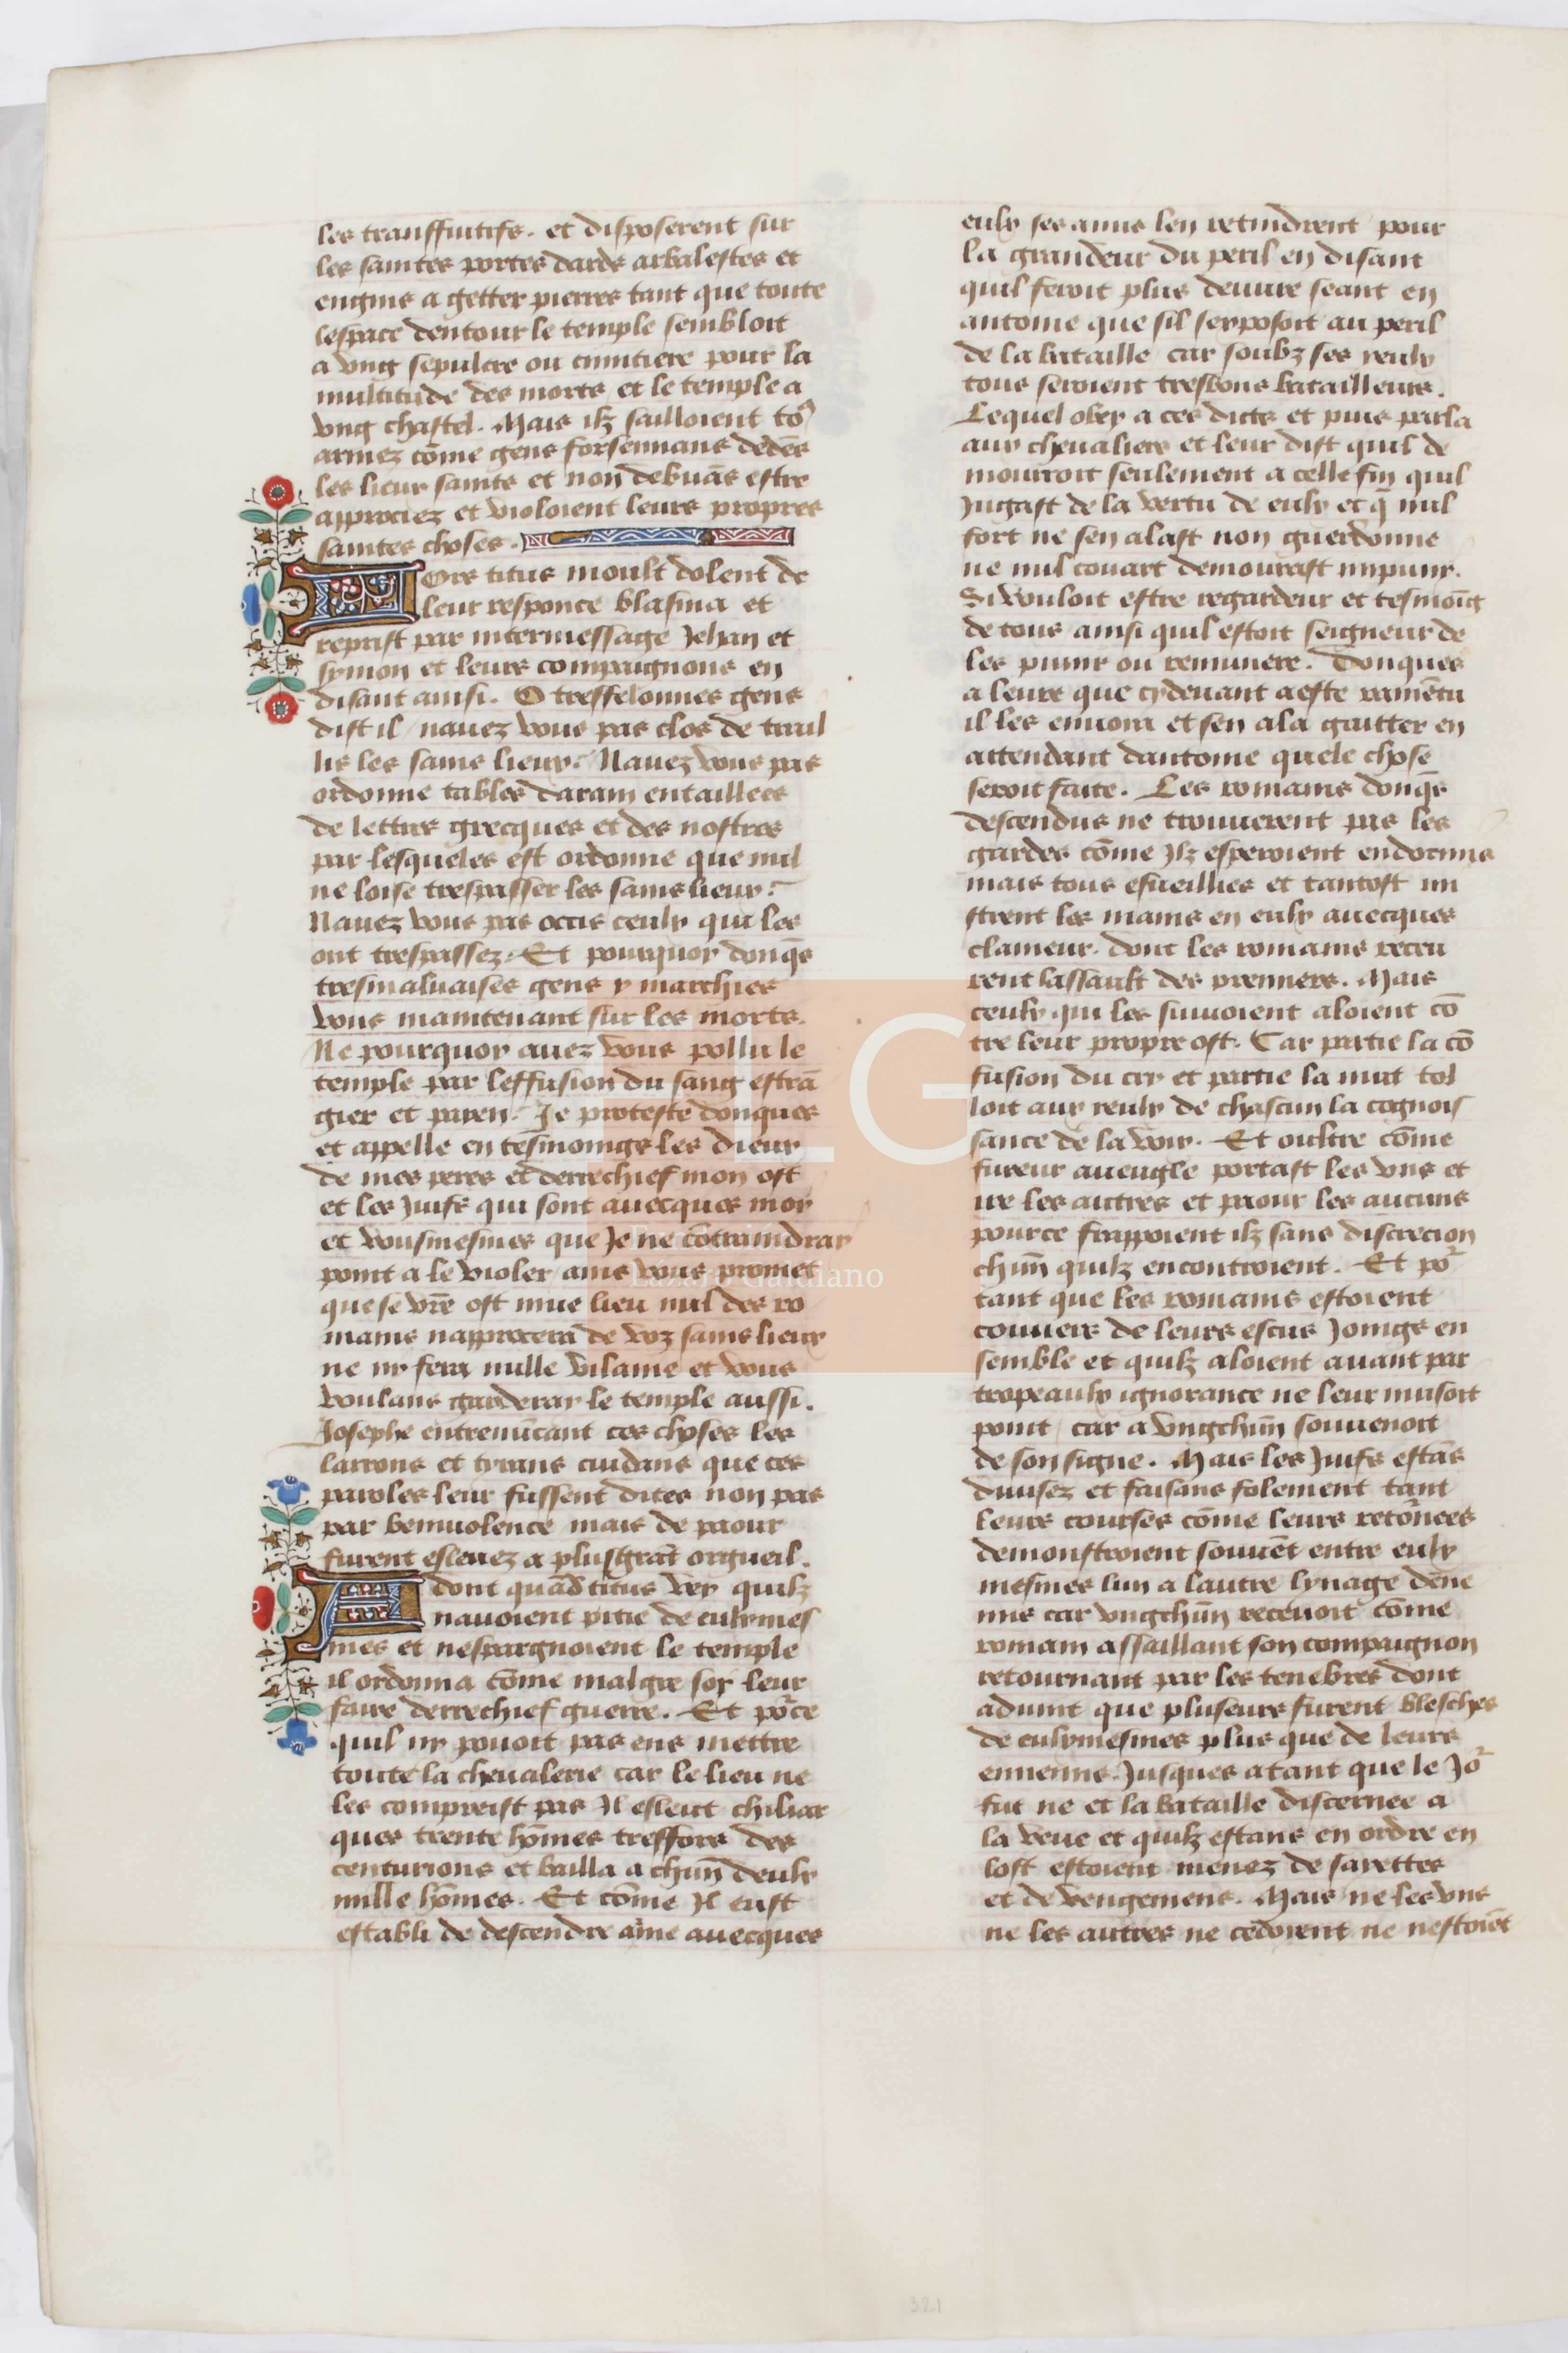 les transffuitifs. et disposerent sur
les saintes portes dards arbalestes et
engins a getter pierres tant que toute
lespace dentour le temple sembloit
a vng sepulcre ou cimitiere pour la
multitude des morts et le temple a
vng chastel. Mais ilz sailloient to9
armez cōme gens forsennans dedēs
les lieux saints et non debuās estre
approciez et violoient leurs propres
saintes choses.
Ors titus moult dolent de
leur responce blasma et
reprist par intermessage Jehan et
symon et leurs compaignons en
disant ainsi. O tresfelonnes gens
dist il / nauez vous pas clos de trail
lis les sains lieux? Nauez vous pas
ordonne tables darain entaillees
de lettres grecques et des nostres
par lesqueles est ordonne que nul
ne loise trespasser les sains lieux?
Nauez vous pas occis ceulx qui les
ont trespassez. Et pourquoy donq̄s
tresmaluaises gens y marchies
vous maintenant sur les morts.
Ne pourquoy auez vous pollu le
temple par leffusion du sang estrā
gier et paien? Je proteste donques
et appelle en tesmoings les dieux
de mes peres et derrechief mon ost
et les Juifs qui sont auecques moy
et vousmesmes que Je ne cōtraindray
point a le violer / ains vous promet
que se vr̄e ost mue lieu nul des ro
mains napprocera de voz sains lieux
ne ny fera nulle vilanie et vous
voulans garderay le temple aussi.
Josephe entrenūcant ces choses les
larrons et tyrans cuidans que ces
paroles leur fussent dites non pas
par beniuolence mais de paour
furent esleuez a plusgrāt orgueil.
Adont quād titus vey quilz
nauoient pitie de eulxmes
mes et nespargnoient le temple
il ordonna cōme malgre soy leur
faire derrechief guerre. Et po'ce
quil ny pouoit pas ens mettre
toute la cheualerie car le lieu ne
les compreist pas Il esleut chiliar
ques trente hōmes tresfors des
centurions et bailla a chūn deulx
mille hōmes. Et cōme Il eust
establi de descendre aīne auecques
eulx ses amis len retindrent pour
la grandeur du peril en disant
quil feroit plus deuure seant en
antoine que sil sexposoit au peril
de la bataille car soubz ses yeulx
tous seroient tresbons batailleurs.
Lequel obey a ces dicts et puis parla
aux cheualiers et leur dist quil de
mouroit seulement a celle fin quil
Jugast de la vertu de eulx et q̄ nul
fort ne sen alast non guerdonne
ne nul couart demourast impuny.
Si vouloit estre regardeur et tesmoīg
de tous ainsi quil estoit seigneur de
les punir ou remunere. Donques
a leure que cydeuant a este ramētu
il les enuoia et sen ala guitter en
attendant dantoine quele chose
seroit faite. Les romains donq̄s
descendus ne trouuerent pas les
gardes cōme Ilz esperoient endormis
mais tous esueillies et tantost mi
strent les mains en eulx auecques
clameur. dont les romains receu
rent lassault des premiers. Mais
ceulx qui les suiuoient aloient cō
tre leur propre ost. Car partie la cō
fusion du cry et partie la nuit tol
loit aux yeulx de chascun la cognois
sance de la voix. Et oultre cōme
fureur aueugle portast les vns et
ire les autres et paour les aucuns
pource frappoient ilz sans discrecion
chūn quilz encontroient. Et po'
tant que les romains estoient
couuers de leurs escus Joings en
semble et quilz aloient auant par
tropeaulx ignorance ne leur nuisoit
point / car a vngchūn souuenoit
de son signe. Mais les Juifs estās
diuisez et faisans folement tant
leurs courses cōme leurs retōnees
demonstroient souuēt entre eulx
mesmes lun a lautre lynage dēne
mis car vngchūn receuoit cōme
romain assaillant son compaignon
retournant par les tenebres dont
aduint que pluseurs furent blesches
de eulxmesmes plus que de leurs
ennemis. Jusques atant que le Jo'
fut ne et la bataille discernee a
la veue et quilz estans en ordre en
lost estoient menez de saiettes
et de vengemens. Mais ne les vns
ne les autres ne cedoient ne nestoiēt
LG
Lázaro Galdiano
321